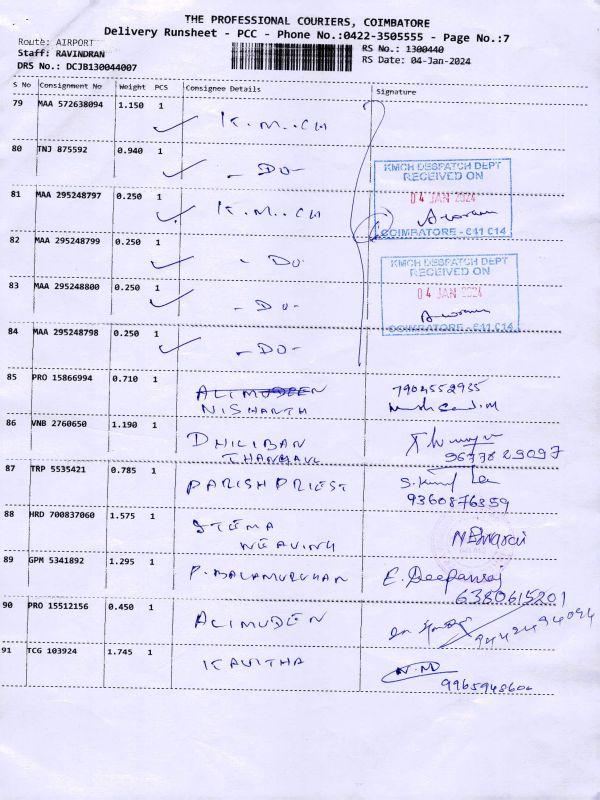 THE PROFESSIONAL COURIERS, COIMBATORE
Delivery Runsheet - PCC - Phone No.:0422-3505555 - Page No.:7
Route: AIRPORT
Staff: RAVINDRAN
DRS No.: DCJB130044007
RS No.: 1300440
RS Date: 04-Jan-2024
S No Consignment No Weight PCS Consignee Details Signature
79 MAA 572638094 1.150 1 K.M..CH
80 TNJ 875592 0.940 1 - DO -
KMCH DESPATCH DEPT
RECEIVED ON
04 JAN 2024
COIMBATORE - 641 014
81 MAA 295248797 0.250 1 K.M..CH
82 MAA 295248799 0.250 1 - DO -
KMCH DESPATCH DEPT
RECEIVED ON
04 JAN 2024
COIMBATORE - 641 014
83 MAA 295248800 0.250 1 - DO -
84 MAA 295248798 0.250 1 - DO -
85 PRO 15866994 0.710 1 ALIMUDEEN 7904552935
NISHANTH
86 VNB 2760650 1.190 1 DHILIBAN
9633829097
87 TRP 5535421 0.785 1 PARISH PRIEST
9360876359
88 HRD 700837060 1.575 1 STEEMA
WEAVING
89 GPM 5341892 1.295 1 P. BALAMURUGHAN E. Deepanraj
6380615201
90 PRO 15512156 0.450 1 ALIMUDEN
9442494094
91 TCG 103924 1.745 1 KAVITHA N.M